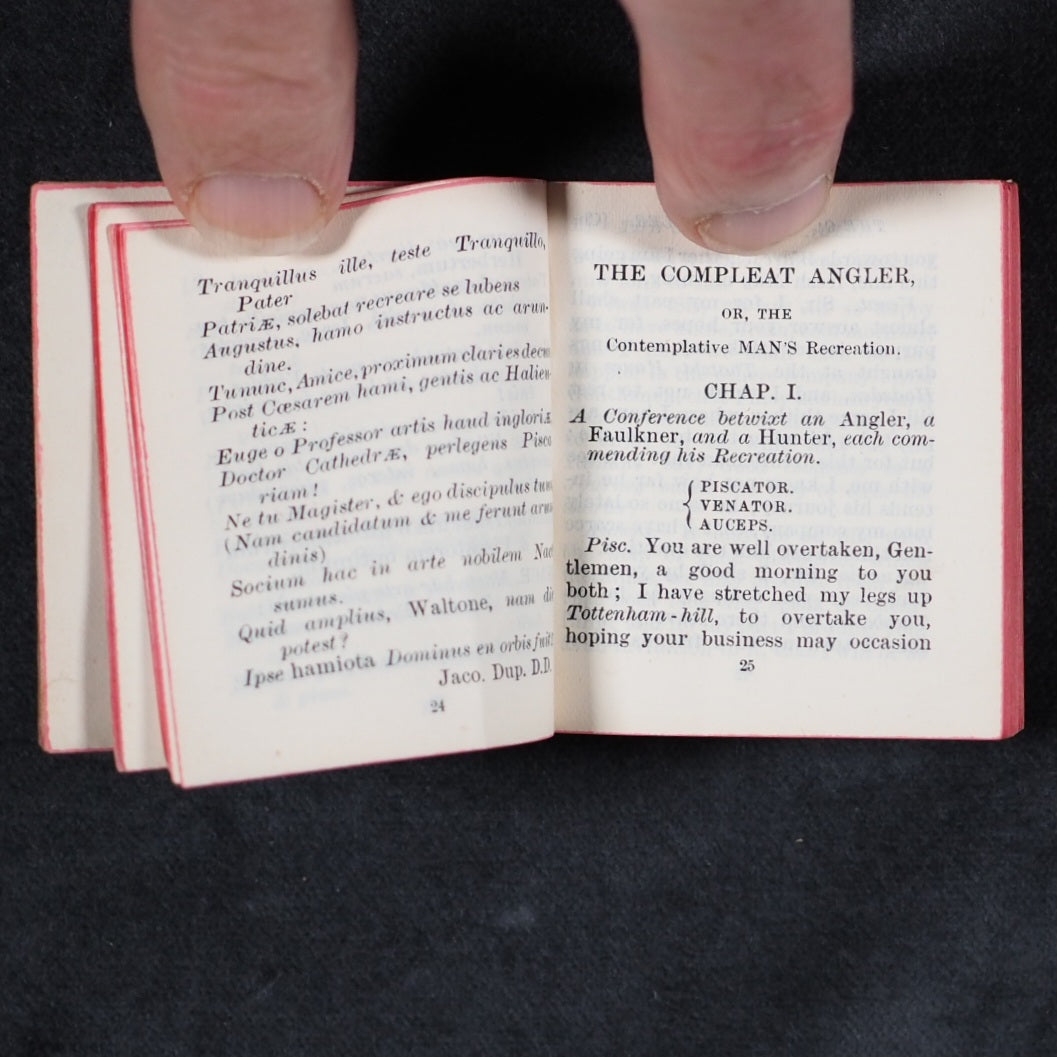 Tranquillus ille, teste Tranquillo,
Pater
PatriÆ, solebat recreare se lubens
Augustus, hamo instructus ac arun-
dine.
Tu nunc, Amice, proximum clari es
Post Cæsarem hami, gentis ac Halieu-
ticÆ:
Euge o Professor artis haud ingloriÆ
Doctor CathedrÆ, perlegens
riam!
Ne tu Magister, & ego discipulus
(Nam candidatum & me ferunt
dinis)
Socium hac in arte nobilem
sumus.
Quid amplius, Waltone, nam
potest?
Ipse hamiota Dominus en orbis fuit!
Jaco. Dup. D.D.
24
THE COMPLEAT ANGLER,
OR, THE
Contemplative MAN'S Recreation.
CHAP. I.
A Conference betwixt an Angler, a
Faulkner, and a Hunter, each com-
mending his Recreation.
PISCATOR.
VENATOR.
AUCEPS.
Pisc. You are well overtaken, Gen-
tlemen, a good morning to you
both; I have stretched my legs up
Tottenham-hill, to overtake you,
hoping your business may occasion
25